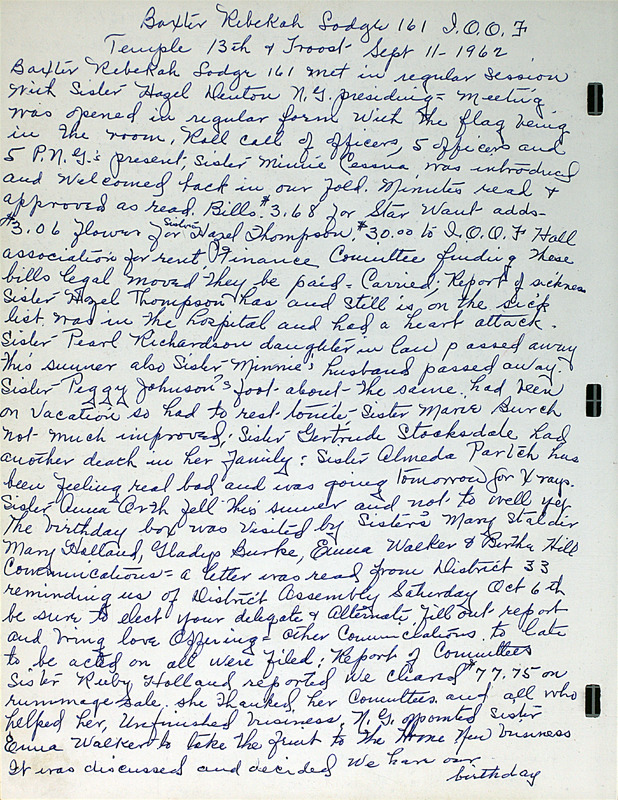 Baxter Rebekah Lodge 161 I.O.O.F
Temple 13th & Troost Sept 11-1962
Baxter Rebekah Lodge 161 met in regular session
with Sister Hazel Denton N.G. presiding = meeting
was opened in regular form with the flag being
in the room, Roll call of officers, 5 officers and
5 P.N.G.'s present. Sister Minnie Cessna, was introduced
and welcomed back in our fold. Minutes read &
approved as read. Bills. $3.68 for Star Want adds-
$3.06 flower for Sister Hazel Thompson. $30.00 to I.O.O.F Hall
association for rent, Finance Committee finding these
bills legal moved they be paid = Carried; Report of sickness
Sister Hazel Thompson has and still is, on the sick
list. was in the hospital and had a heart attack.
Sister Pearl Richardson daughter in law passed away
this summer also Sister Minnie's husband passed away.
Sister Peggy Johnson's foot about the same. had been
on vacation so had to rest Sister Marie Burch
not much improved; Sister Gertrude Stocksdale had
another death in her family: Sister Almeda has
been feeling real bad and was going tomorrow for X rays.
Sister Anna Orth fell this summer and not to well yet
The birthday box was visited by Sisters Mary Stalder
Mary Holland, Gladys Burke, Emma Walker & Birtha Hill
Communications = a letter was read from District 33
reminding us of District Assembly Saturday Oct 6th
be sure to elect your delegate & Alternate. fill out report
and bring love Offering = other Communications to late
to be acted on all were filed; Report of Committees
Sister Ruby Holland reported we cleared $77.75 on
rummage sale. she thanked her Committees and all who
helped her, Unfinished business, N.G. oppointed Sister
Emma Walker to take the fruit to the Home New business
It was discussed and decided we have our
birthday